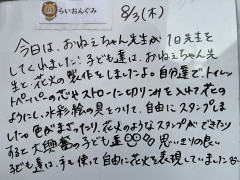 らいおんぐみ
8/3(木)
今日は、おねえちゃん先生が1日先生を
してくれました!子ども達は、おねえちゃん先
生と花火の製作をしましたよ。自分達で、トイレッ
トペーパーの芯やストローに切り込みを入れて花の
ようにし、水彩絵の具をつけて、自由にスタンプしま
した。色がまざったり、花火のようなスタンプができたり
すると大興奮の子ども達 思い切りの良い
子ども達は、手も使って自由に花火を表現していました